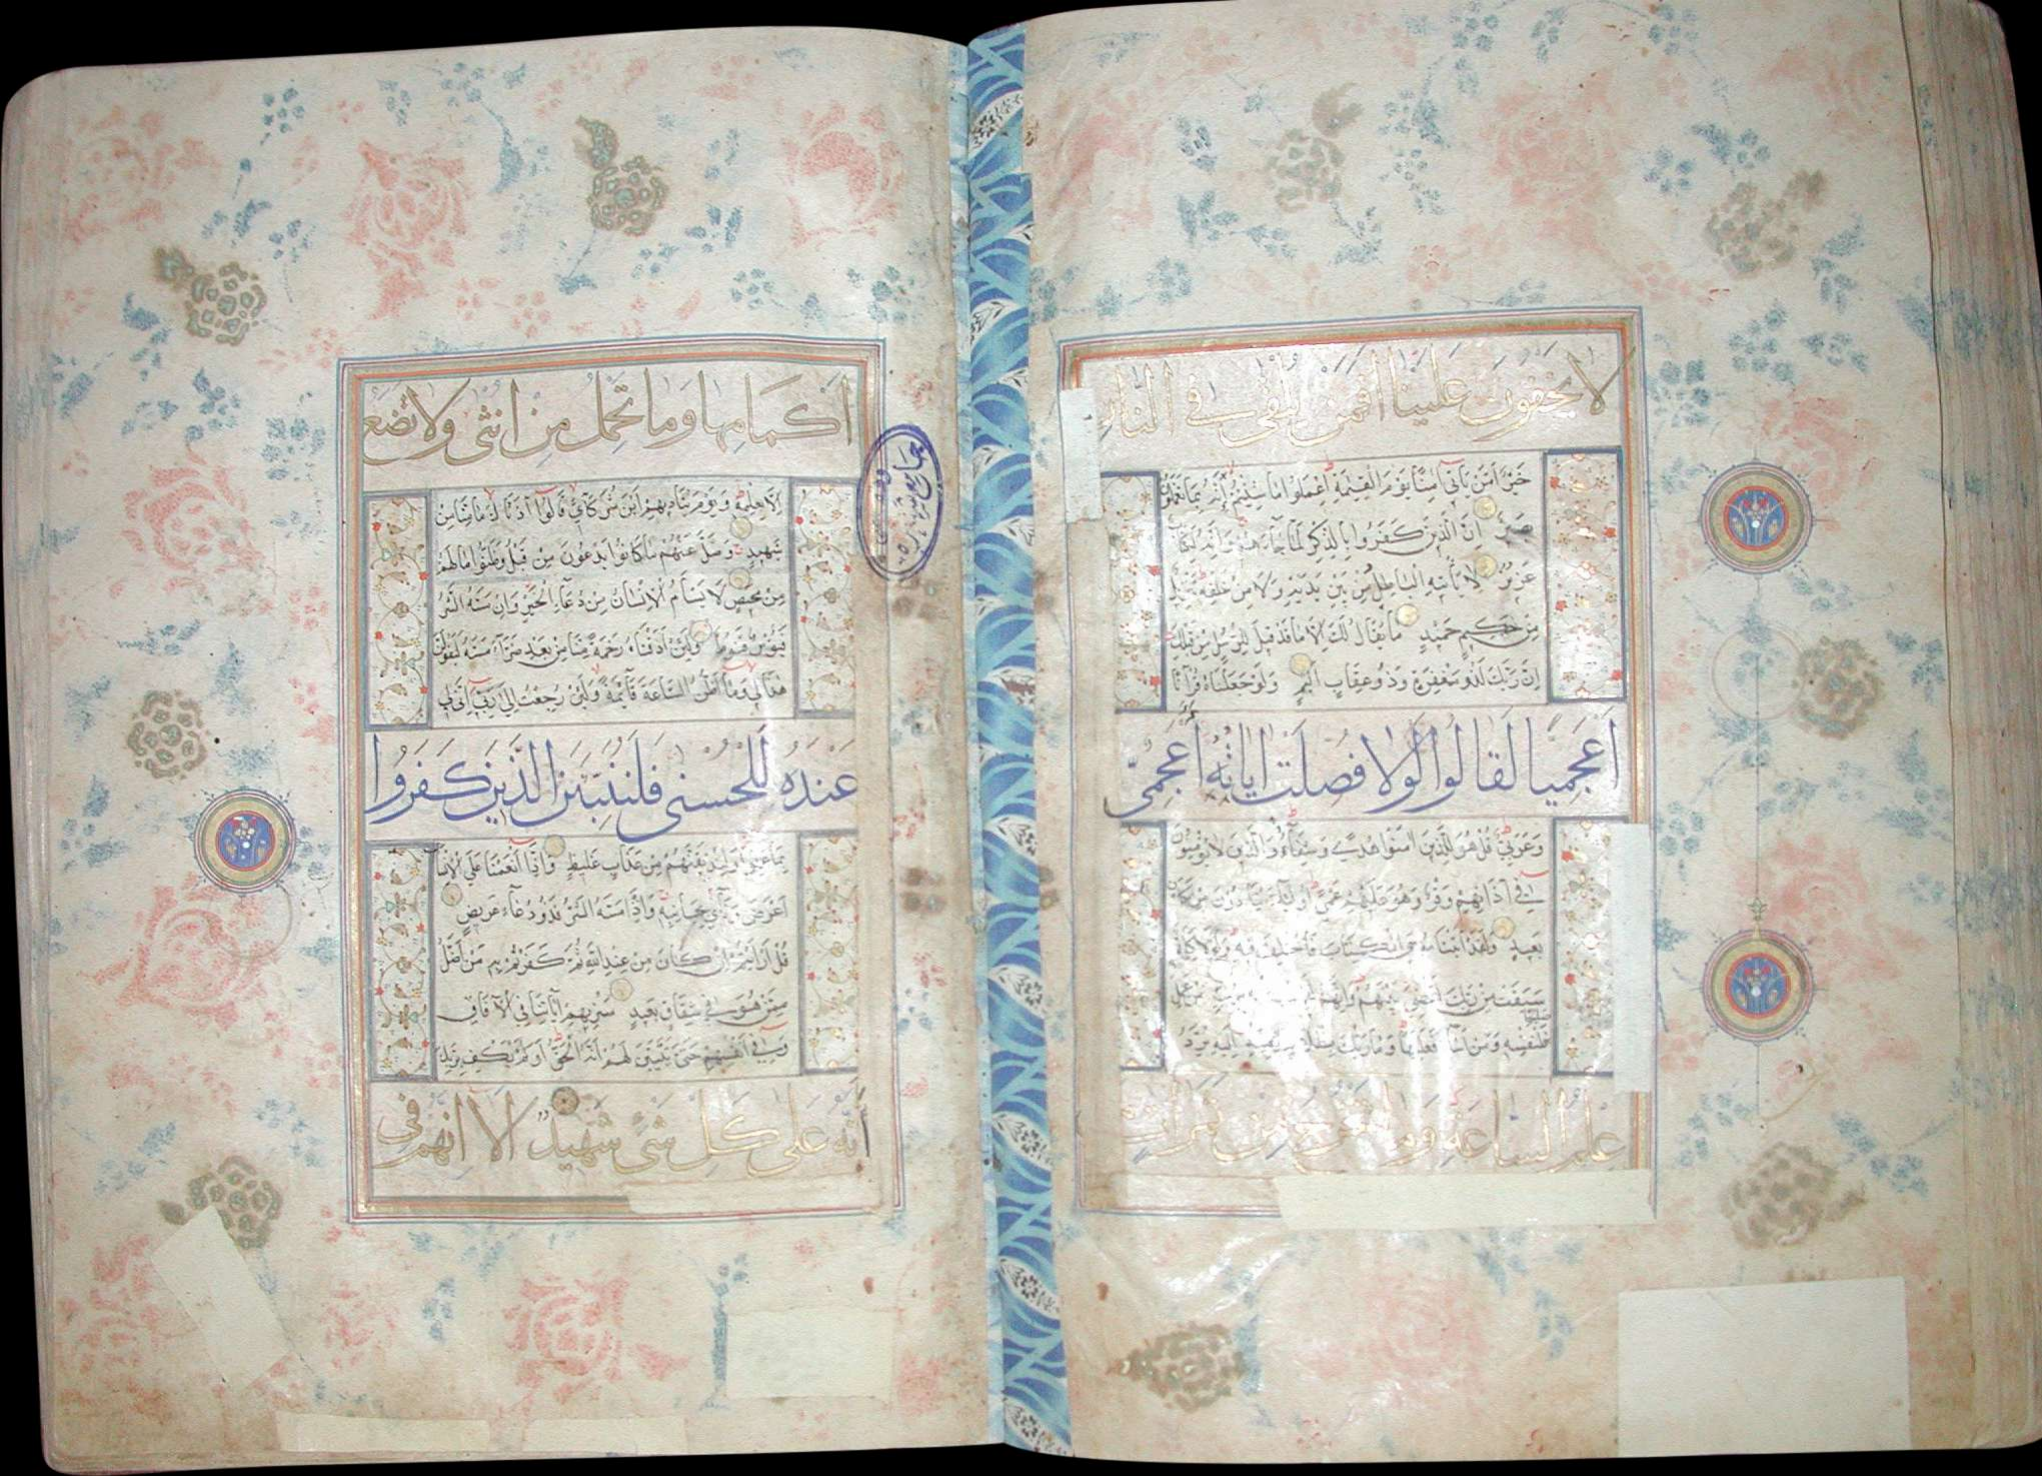 لا يخفون علينا افمن يلقى في النار
خَيْرٌ أَمَّنْ يَأْتِي آمِنًا يَوْمَ الْقِيٰمَةِ اعْمَلُوا مَا شِئْتُمْ إِنَّهُ بِمَا تَعْمَلُونَ
بَصِيرٌ إِنَّ الَّذِينَ كَفَرُوا بِالذِّكْرِ لَمَّا جَاءَهُمْ وَإِنَّهُ لَكِتَابٌ
عَزِيزٌ لَا يَأْتِيهِ الْبَاطِلُ مِنْ بَيْنِ يَدَيْهِ وَلَا مِنْ خَلْفِهِ تَنْزِيلٌ
مِنْ حَكِيمٍ حَمِيدٍ مَا يُقَالُ لَكَ إِلَّا مَا قَدْ قِيلَ لِلرُّسُلِ مِنْ قَبْلِكَ
إِنَّ رَبَّكَ لَذُو مَغْفِرَةٍ وَذُو عِقَابٍ أَلِيمٍ وَلَوْ جَعَلْنَاهُ قُرْآنًا
أَعْجَمِيًّا لَقَالُوا لَوْلَا فُصِّلَتْ اٰيَاتُهُ أَعْجَمِيٌّ
وَعَرَبِيٌّ قُلْ هُوَ لِلَّذِينَ اٰمَنُوا هُدًى وَشِفَاءٌ وَالَّذِينَ لَا يُؤْمِنُونَ
فِي آذَانِهِمْ وَقْرٌ وَهُوَ عَلَيْهِمْ عَمًى أُولٰئِكَ يُنَادَوْنَ مِنْ مَكَانٍ
بَعِيدٍ وَلَقَدْ آتَيْنَا مُوسَى الْكِتَابَ فَاخْتُلِفَ فِيهِ وَلَوْلَا كَلِمَةٌ
سَبَقَتْ مِنْ رَبِّكَ لَقُضِيَ بَيْنَهُمْ وَإِنَّهُمْ
فَلِنَفْسِهِ وَمَنْ أَسَاءَ فَعَلَيْهَا وَمَا رَبُّكَ بِظَلَّامٍ لِلْعَبِيدِ إِلَيْهِ يُرَدُّ
علم الساعة وما تخرج من ثمرات
أكمامها وما تحمل من انثى ولا تضع
إِلَّا بِعِلْمِهِ وَيَوْمَ يُنَادِيهِمْ أَيْنَ شُرَكَائِي قَالُوا آذَنَّاكَ مَا مِنَّا مِنْ
شَهِيدٍ وَضَلَّ عَنْهُمْ مَا كَانُوا يَدْعُونَ مِنْ قَبْلُ وَظَنُّوا مَا لَهُمْ
مِنْ مَحِيصٍ لَا يَسْأَمُ الْإِنْسَانُ مِنْ دُعَاءِ الْخَيْرِ وَإِنْ مَسَّهُ الشَّرُّ
فَيَئُوسٌ قَنُوطٌ وَلَئِنْ أَذَقْنَاهُ رَحْمَةً مِنَّا مِنْ بَعْدِ ضَرَّاءَ مَسَّتْهُ لَيَقُولَنَّ
هٰذَا لِي وَمَا أَظُنُّ السَّاعَةَ قَائِمَةً وَلَئِنْ رُجِعْتُ إِلَى رَبِّي إِنَّ لِي
عِنْدَهُ لَلْحُسْنَى فَلَنُنَبِّئَنَّ الَّذِينَ كَفَرُوا
بِمَا عَمِلُوا وَلَنُذِيقَنَّهُمْ مِنْ عَذَابٍ غَلِيظٍ وَإِذَا أَنْعَمْنَا عَلَى الْإِنْسَانِ
أَعْرَضَ وَنَأَى بِجَانِبِهِ وَإِذَا مَسَّهُ الشَّرُّ فَذُو دُعَاءٍ عَرِيضٍ
قُلْ أَرَأَيْتُمْ إِنْ كَانَ مِنْ عِنْدِ اللَّهِ ثُمَّ كَفَرْتُمْ بِهِ مَنْ أَضَلُّ
مِمَّنْ هُوَ فِي شِقَاقٍ بَعِيدٍ سَنُرِيهِمْ آيَاتِنَا فِي الْآفَاقِ
وَفِي أَنْفُسِهِمْ حَتَّى يَتَبَيَّنَ لَهُمْ أَنَّهُ الْحَقُّ أَوَلَمْ يَكْفِ بِرَبِّكَ
أَنَّهُ عَلَى كُلِّ شَيْءٍ شَهِيدٌ أَلَا إِنَّهُمْ فِي